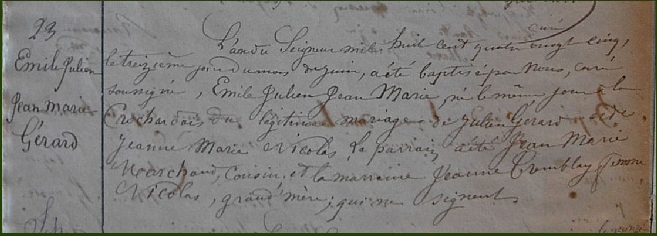 23
Emile Julien
Jean Marie
Gérard
L'an du Seigneur mil huit cent quatre vingt cinq,
le treizième jour du mois de juin, a été baptisé par Nous, curé
soussigné, Emile Julien Jean Marie, né le même jour à la
Crochardois du légitime mariage de Julien Gérard et de
Jeanne Marie Nicolas, le parrain a été Jean Marie
Marchand, cousin, et la marraine Jeanne Tremblay femme
Nicolas, grand'mère; qui ne signent